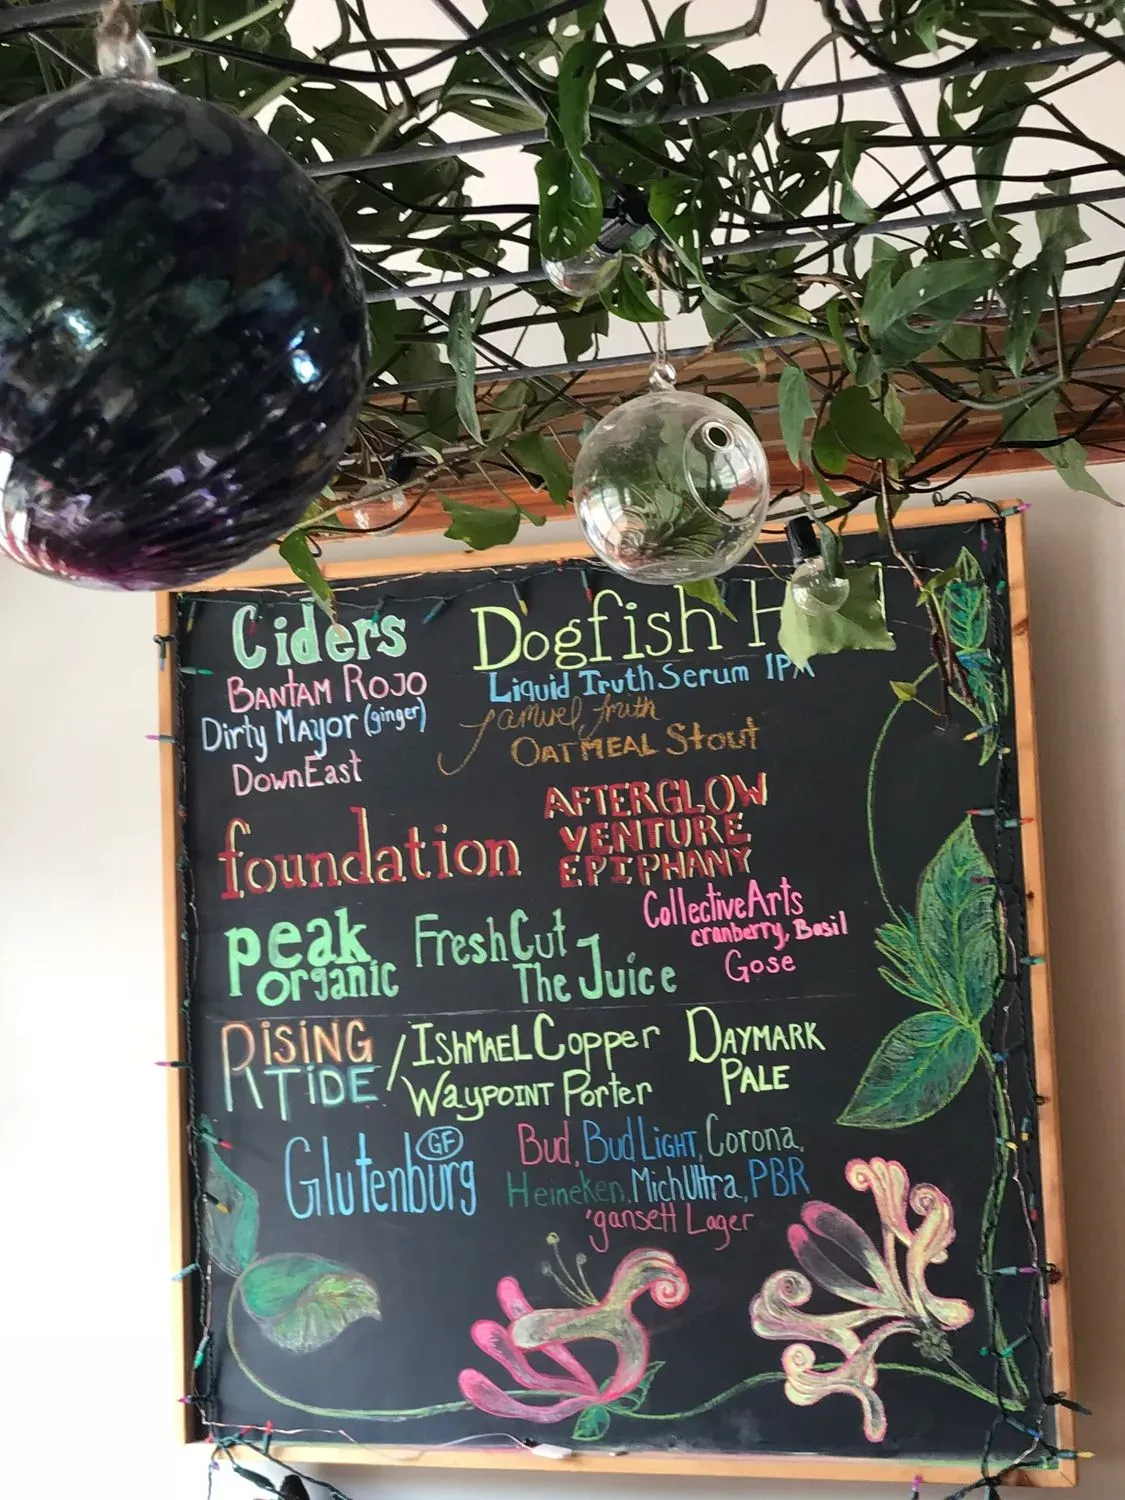 Ciders
BANTAM ROJO
Dirty MAyor (ginger)
DownEast
Dogfish H
Liquid Truth Serum IPA
Samuel Smith
OATMEAL Stout
foundation
AFTERGLOW
VENTURE
EPIPHANY
peak
organic
FreshCut
The Juice
CollectiveArts
cranberry, Basil
Gose
RiSiNG
TiDE
/
IShMAEL Copper
WAypOINT Porter
DAYMARK
PALE
Glutenburg
GF
Bud, Bud LIGHT, Corona,
Heineken, MichUltra, PBR
'gansett Lager